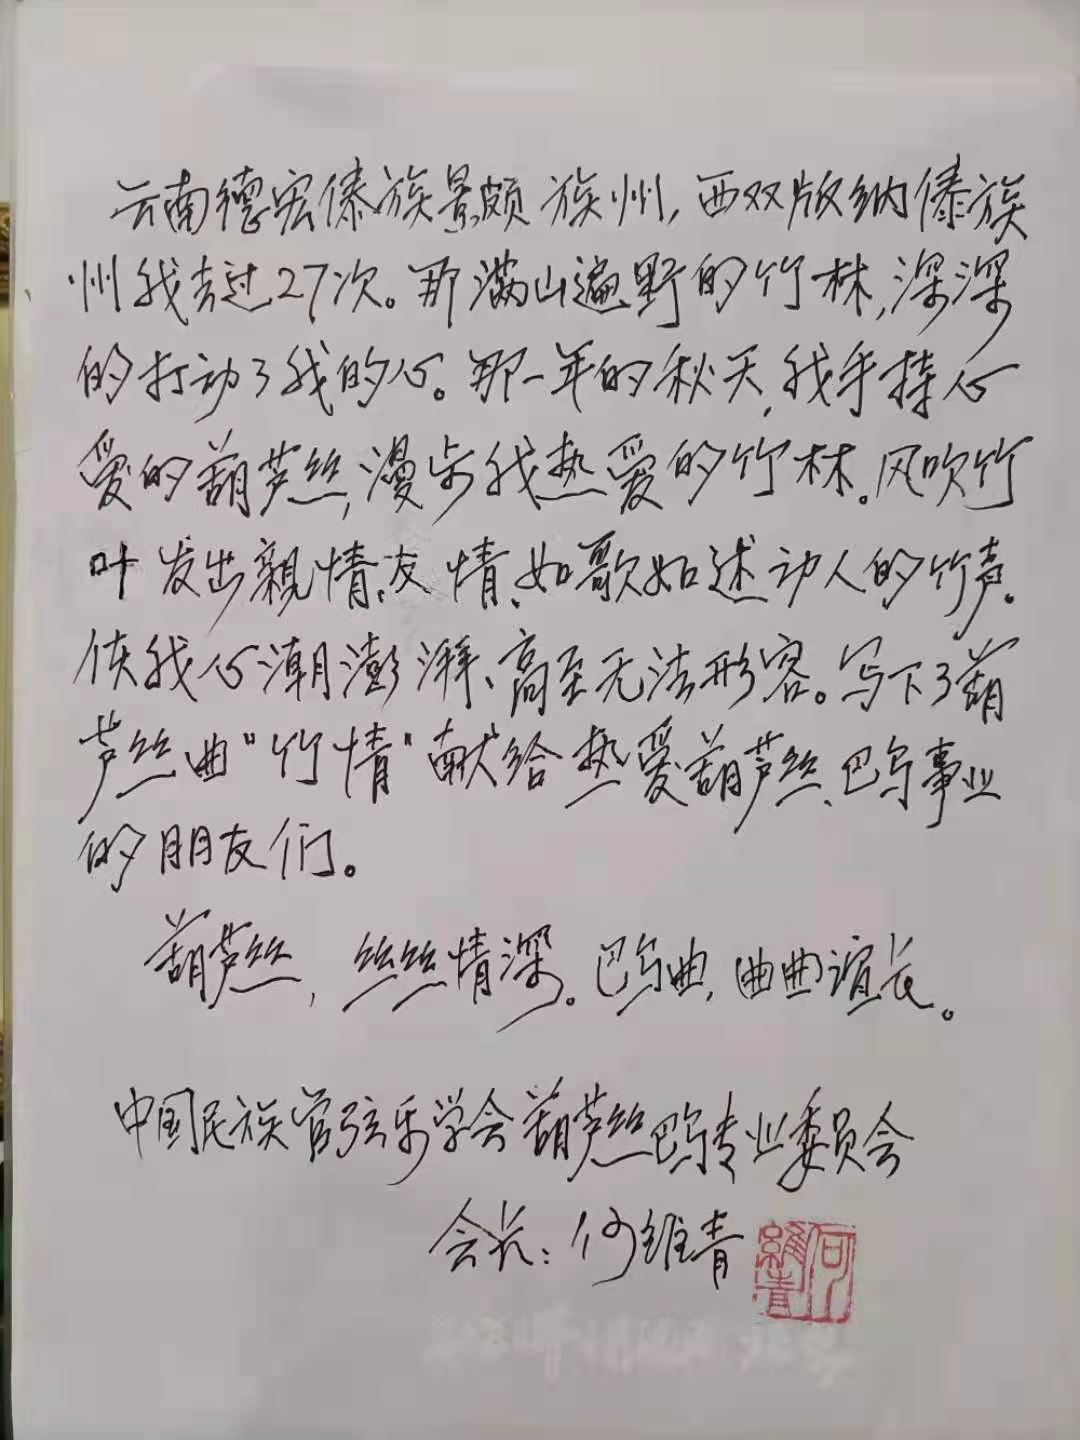 云南德宏傣族景颇族州，西双版纳傣族
州我去过27次。那满山遍野的竹林，深深
的打动了我的心。那一年的秋天，我手持心
爱的葫芦丝，漫步我热爱的竹林。风吹竹
叶发出親情、友情、如歌如述动人的竹声。
使我心潮澎湃、高至无法形容。写下了葫
芦丝曲"竹情"献给热爱葫芦丝、巴乌事业
的朋友们。
葫芦丝，丝丝情深。巴乌曲，曲曲谊长。
中国民族管弦乐学会葫芦丝巴乌专业委员会
会长：何维青
何維青